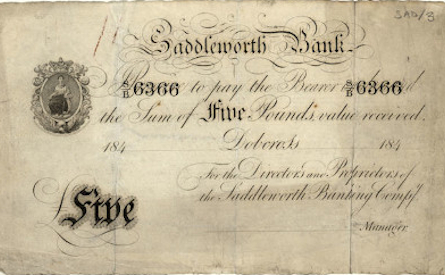 SAD/3
Saddleworth Bank
S/B 6366 to pay the Bearer S/B 6366
the Sum of Five Pounds, value received.
184 Dobcross 184
For the Directors and Proprietors of
the Saddleworth Banking Compy.
£ Five
Manager.